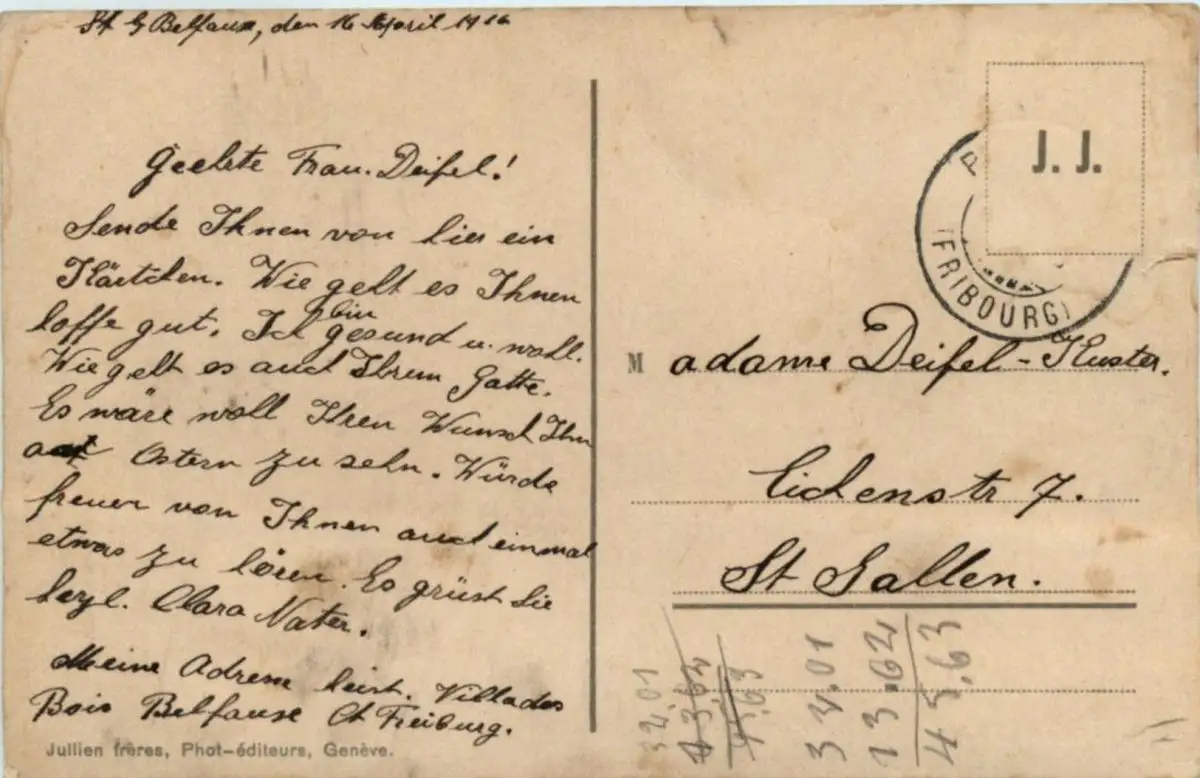 St G Belfaux, den 16 April 1916
Geehrte Frau. Deifel!
Sende Ihnen von hier ein
Kärtchen. Wie geht es Ihnen
hoffe gut. Ich bin gesund u. wohl.
Wie geht es auch Ihrem Gatte.
Es wäre wohl Ihren Wunsch Ihn
Ostern zu sehn. Würde
freuen von Ihnen auch einmal
etwas zu hören. Es grüst Sie
herzl. Clara Nater.
Meine Adresse heist. Villa des
Bois Belfause Ct Freiburg.
Jullien frères, Phot-éditeurs, Genève.
J. J.
(FRIBOURG)
Madame Deifel-Kuster.
Eichenstr 7.
St Gallen.
32.01
13.62
45.63